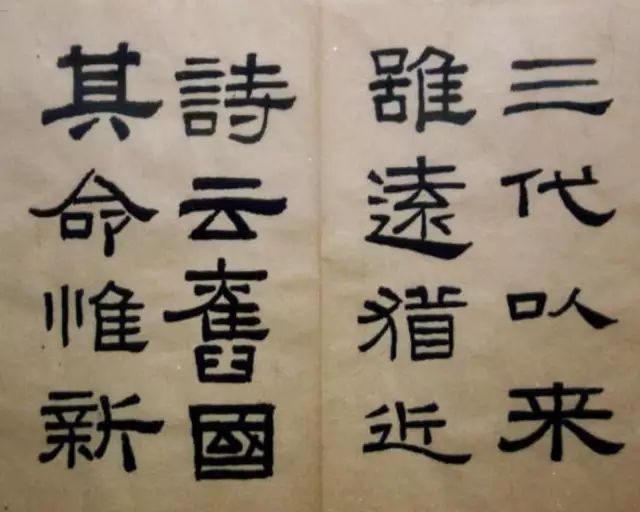 三代以来
雖遠猶近
詩云舊國
其命惟新